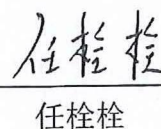 任栓栓
任栓栓